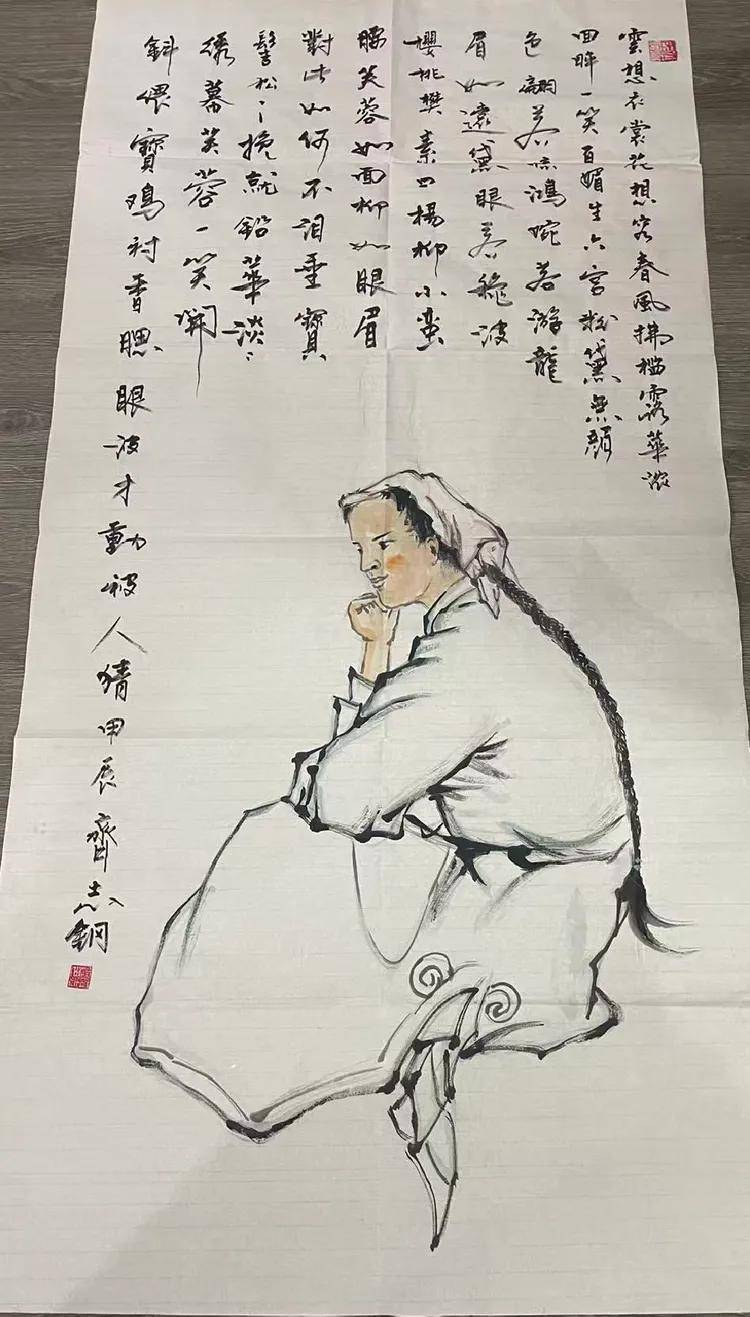 雲想衣裳花想容春風拂檻露華濃
回眸一笑百媚生六宮粉黛無顏
色翩若驚鴻婉若游龍
眉如遠黛眼若秋波
櫻桃樊素口楊柳小蠻
腰芙蓉如面柳如眼眉
對此如何不泪垂寶
髻松松挽就鉛華淡淡
綉幕芙蓉一笑開
斜偎寶鴨衬香腮眼波才動被人猜甲辰齊志鋼